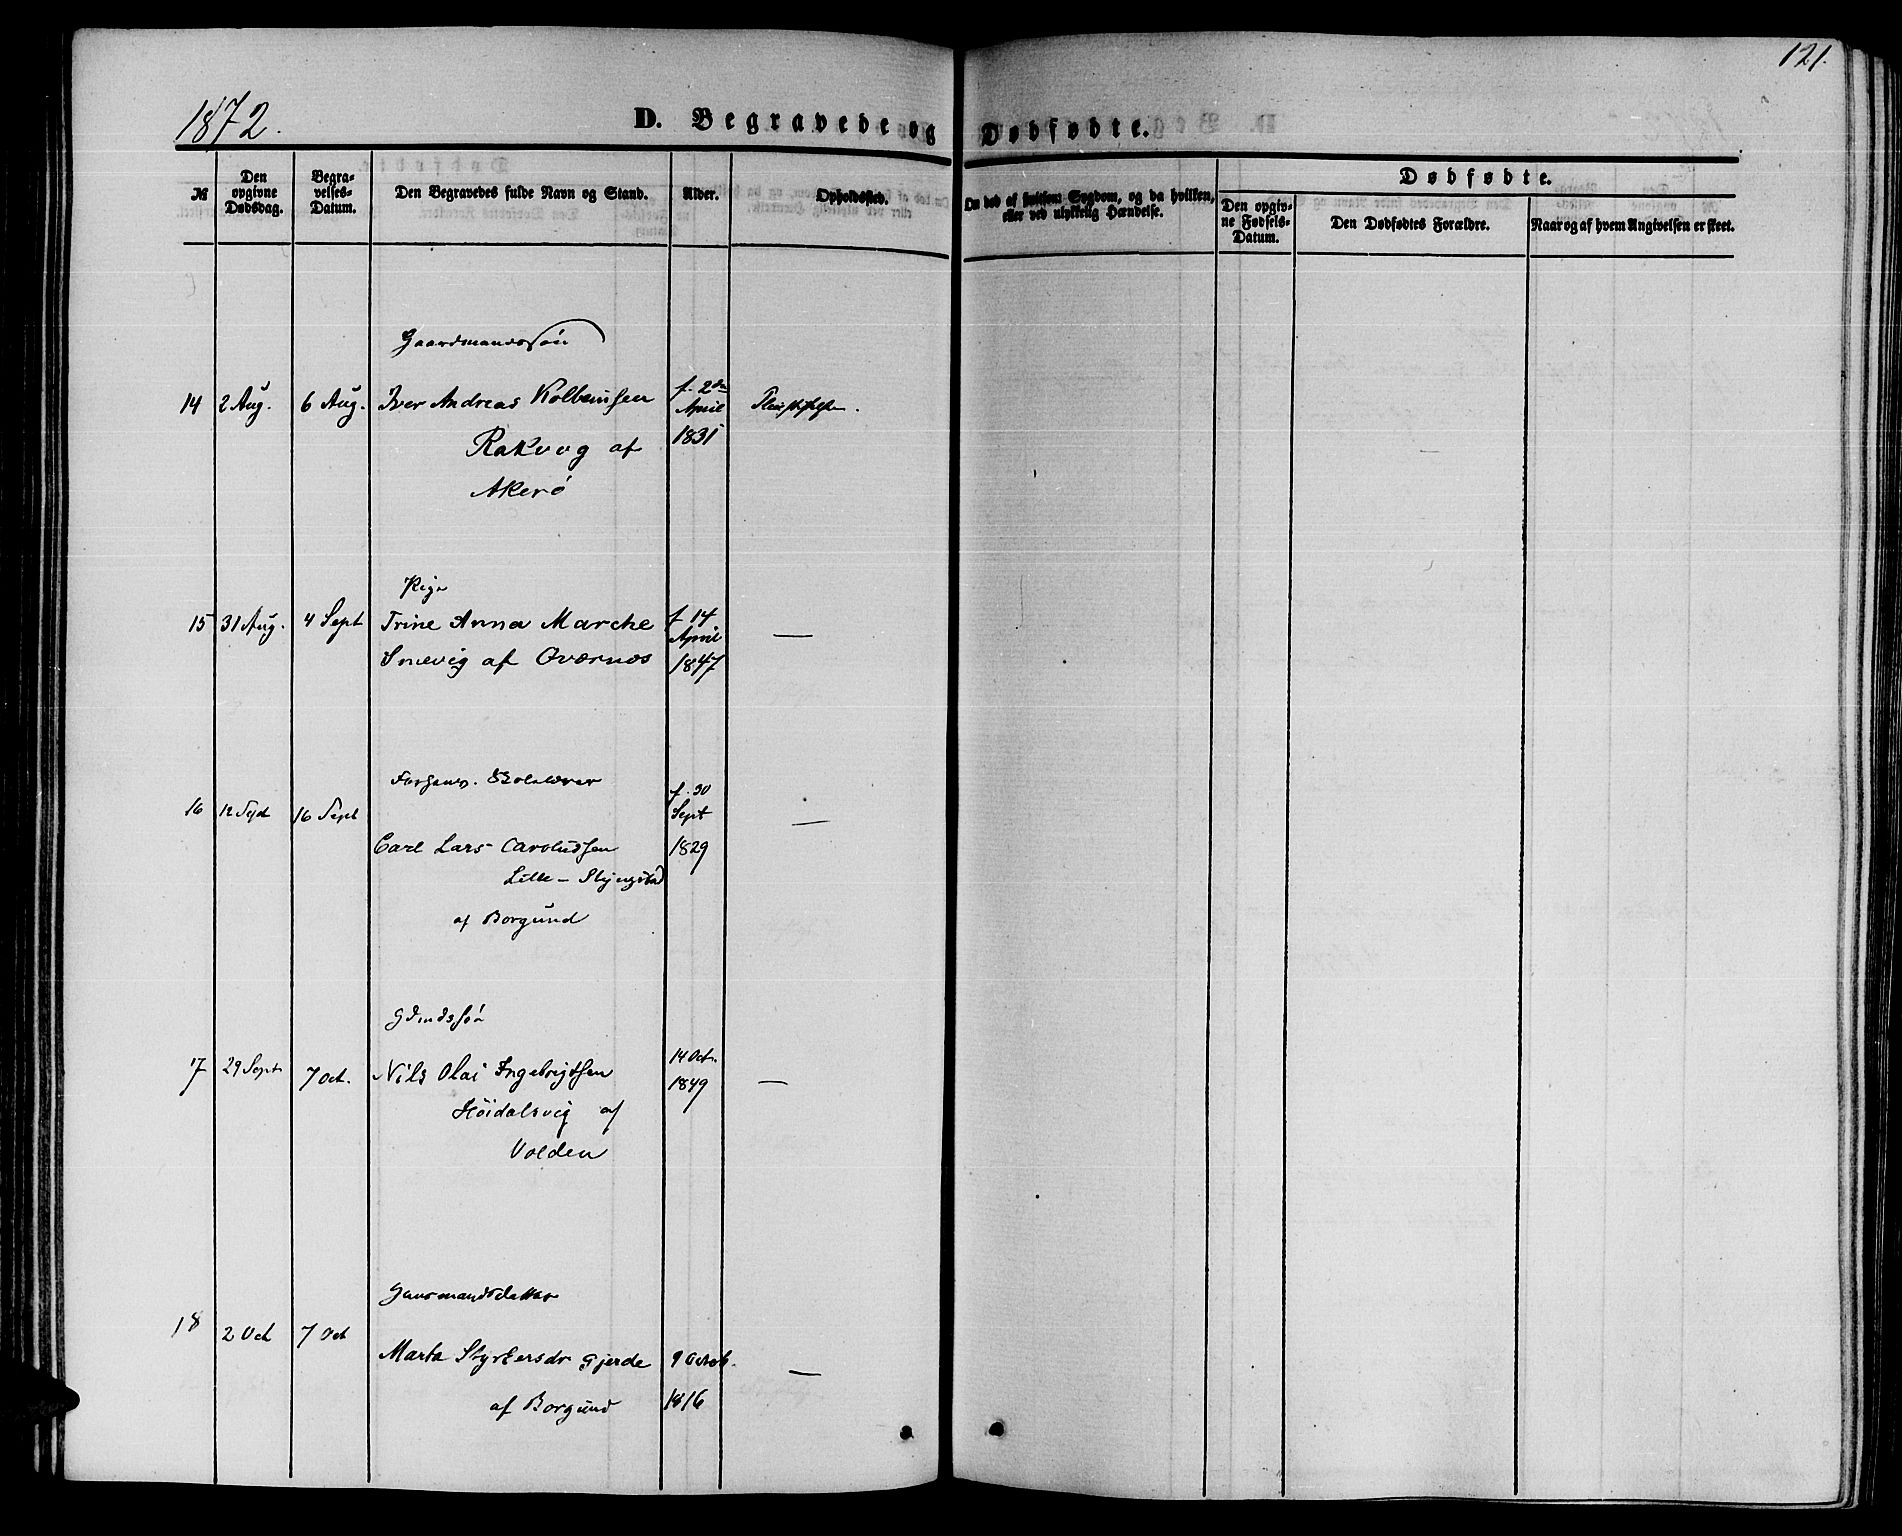 121.
1872.
D. Begravede og Dødfødte.
№
Den opgivne Dødsdag.
Begra-velses-Datum.
Den Begravedes fulde Navn og Stand.
Alder.
Opholdssted.
Om død af hvilken Sygdom, og da hvilken, eller ved ulykkelig Hændelse.
Dødfødte.
Den opgiv-ne Fødsels-Datum.
Den Dødfødtes Forældre.
Naar og af hvem Angivelsen er skeet.
Gaardmandssøn
14 2 Aug. 6 Aug. Iver Andreas Kolbeinsen f. 2den
April
1831
Rakvog af
Akerø
Pige
15 31 Aug. 4 Sept Trine Anna Marche f 14
April —
Smevig af Oværnæs 1847
Skolelærer
f. 30
16 12 Sept 16 Sept Sept —
Carl Lars Carolusen 1829
Lille-Slyngstad
af Borgund
Gdmdssøn
17 29 Sept 7 Oct. Nils Olai Ingebrigtsen 14 Oct.
1849 —
Höidalsvig af
Volden
Gaardmandsdatter
18 2 Oct 7 Oct
Marta Styrkersdr Gjerde 9 Octob. —
af Borgund 1816